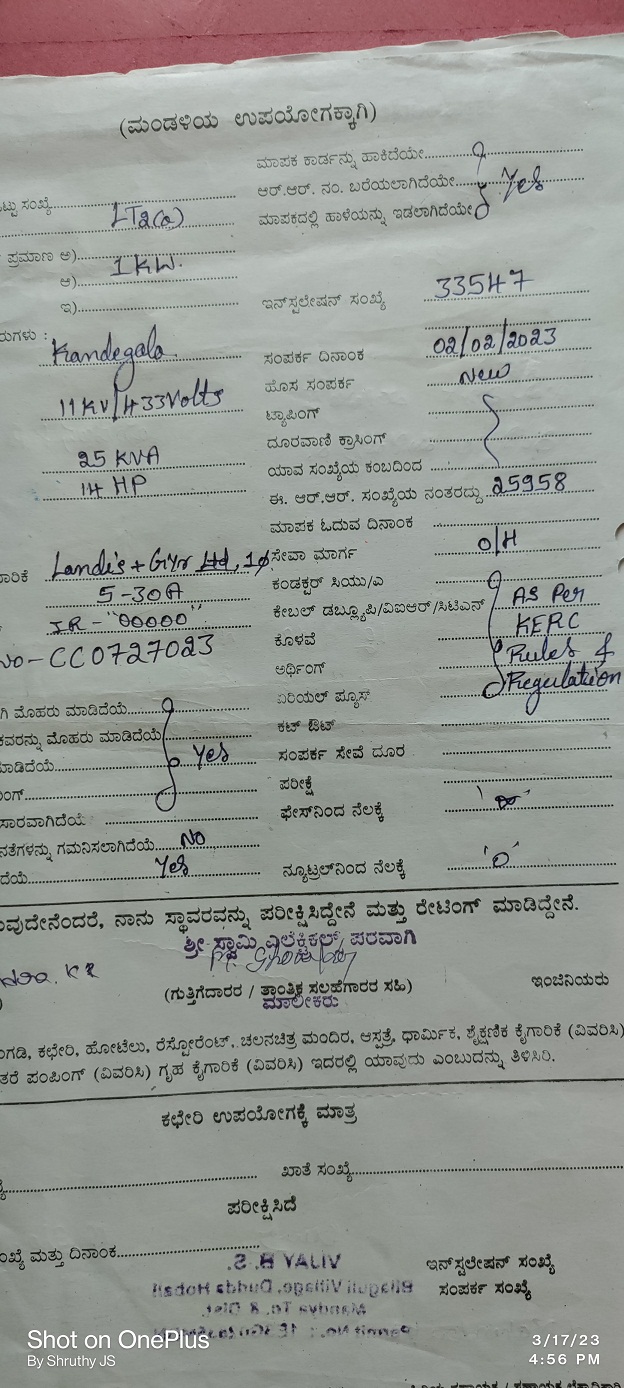 (ಮಂಡಳಿಯ ಉಪಯೋಗಕ್ಕಾಗಿ)
ಮಾಪಕ ಕಾರ್ಡನ್ನು ಹಾಕಿದೆಯೇ
ಟ್ಟು ಸಂಖ್ಯೆ LT2(a) ಆರ್.ಆರ್. ನಂ. ಬರೆಯಲಾಗಿದೆಯೇ Yes
ಮಾಪಕದಲ್ಲಿ ಹಾಳೆಯನ್ನು ಇಡಲಾಗಿದೆಯೇ
ಪ್ರಮಾಣ ಅ) 1 KW.
ಆ)
ಇ) ಇನ್‌ಸ್ಟಲೇಷನ್ ಸಂಖ್ಯೆ 33547
ರುಗಳು :
Kandegala ಸಂಪರ್ಕ ದಿನಾಂಕ 02/02/2023
ಹೊಸ ಸಂಪರ್ಕ New
11KV/433Volts ಟ್ಯಾಪಿಂಗ್
ದೂರವಾಣಿ ಕ್ರಾಸಿಂಗ್
25 KVA ಯಾವ ಸಂಖ್ಯೆಯ ಕಂಬದಿಂದ
14 HP ಈ. ಆರ್.ಆರ್. ಸಂಖ್ಯೆಯ ನಂತರದ್ದು 25958
ಮಾಪಕ ಓದುವ ದಿನಾಂಕ
ಾರಿಕೆ Landis + Gyr Ltd, 1ϕ ಸೇವಾ ಮಾರ್ಗ O/H
5-30A ಕಂಡಕ್ಟರ್ ಸಿಯು/ಎ
IR - "00000" ಕೇಬಲ್ ಡಬ್ಲ್ಯೂಪಿ/ವಿಐಆರ್/ಸಿಟಿಎಸ್ As Per
No - CC0727023 ಕೊಳವೆ KERC
ಅರ್ಥಿಂಗ್ Rules &
ಗಿ ಮೊಹರು ಮಾಡಿದೆಯೆ ಏರಿಯಲ್ ಫ್ಯೂಸ್ Regulation
ಕವರನ್ನು ಮೊಹರು ಮಾಡಿದೆಯೆ ಕಟ್ ಔಟ್
ಮಾಡಿದೆಯೆ Yes ಸಂಪರ್ಕ ಸೇವೆ ದೂರ
ಂಗ್ ಪರೀಕ್ಷೆ
ಸಾರವಾಗಿದೆಯೆ ಫೇಸ್‌ನಿಂದ ನೆಲಕ್ಕೆ '∞'
ನತೆಗಳನ್ನು ಗಮನಿಸಲಾಗಿದೆಯೆ No
ದೆಯೆ Yes ನ್ಯೂಟ್ರಲ್‌ನಿಂದ ನೆಲಕ್ಕೆ '0'
ುವುದೇನೆಂದರೆ, ನಾನು ಸ್ಥಾವರವನ್ನು ಪರೀಕ್ಷಿಸಿದ್ದೇನೆ ಮತ್ತು ರೇಟಿಂಗ್ ಮಾಡಿದ್ದೇನೆ.
ಶ್ರೀ ಸ್ವಾಮಿ ಎಲೆಕ್ಟ್ರಿಕಲ್ಸ್ ಪರವಾಗಿ
(ಗುತ್ತಿಗೆದಾರರ / ತಾಂತ್ರಿಕ ಸಲಹೆಗಾರರ ಸಹಿ) ಇಂಜಿನಿಯರು
ಮಾಲೀಕರು
ಂಗಡಿ, ಕಛೇರಿ, ಹೋಟೆಲು, ರೆಸ್ಟೋರೆಂಟ್, ಚಲನಚಿತ್ರ ಮಂದಿರ, ಆಸ್ಪತ್ರೆ, ಧಾರ್ಮಿಕ, ಶೈಕ್ಷಣಿಕ ಕೈಗಾರಿಕೆ (ವಿವರಿಸಿ)
ತರೆ ಪಂಪಿಂಗ್ (ವಿವರಿಸಿ) ಗೃಹ ಕೈಗಾರಿಕೆ (ವಿವರಿಸಿ) ಇದರಲ್ಲಿ ಯಾವುದು ಎಂಬುದನ್ನು ತಿಳಿಸಿರಿ.
ಕಛೇರಿ ಉಪಯೋಗಕ್ಕೆ ಮಾತ್ರ
ಖಾತೆ ಸಂಖ್ಯೆ
ಪರೀಕ್ಷಿಸಿದೆ
ಖ್ಯೆ ಮತ್ತು ದಿನಾಂಕ
VIJAY B. S. ಇನ್‌ಸ್ಟಲೇಷನ್ ಸಂಖ್ಯೆ
Village, Dudda Hobali ಸಂಪರ್ಕ ಸಂಖ್ಯೆ
Mandya Tq. & Dist.
Shot on OnePlus
By Shruthy JS
3/17/23
4:56 PM